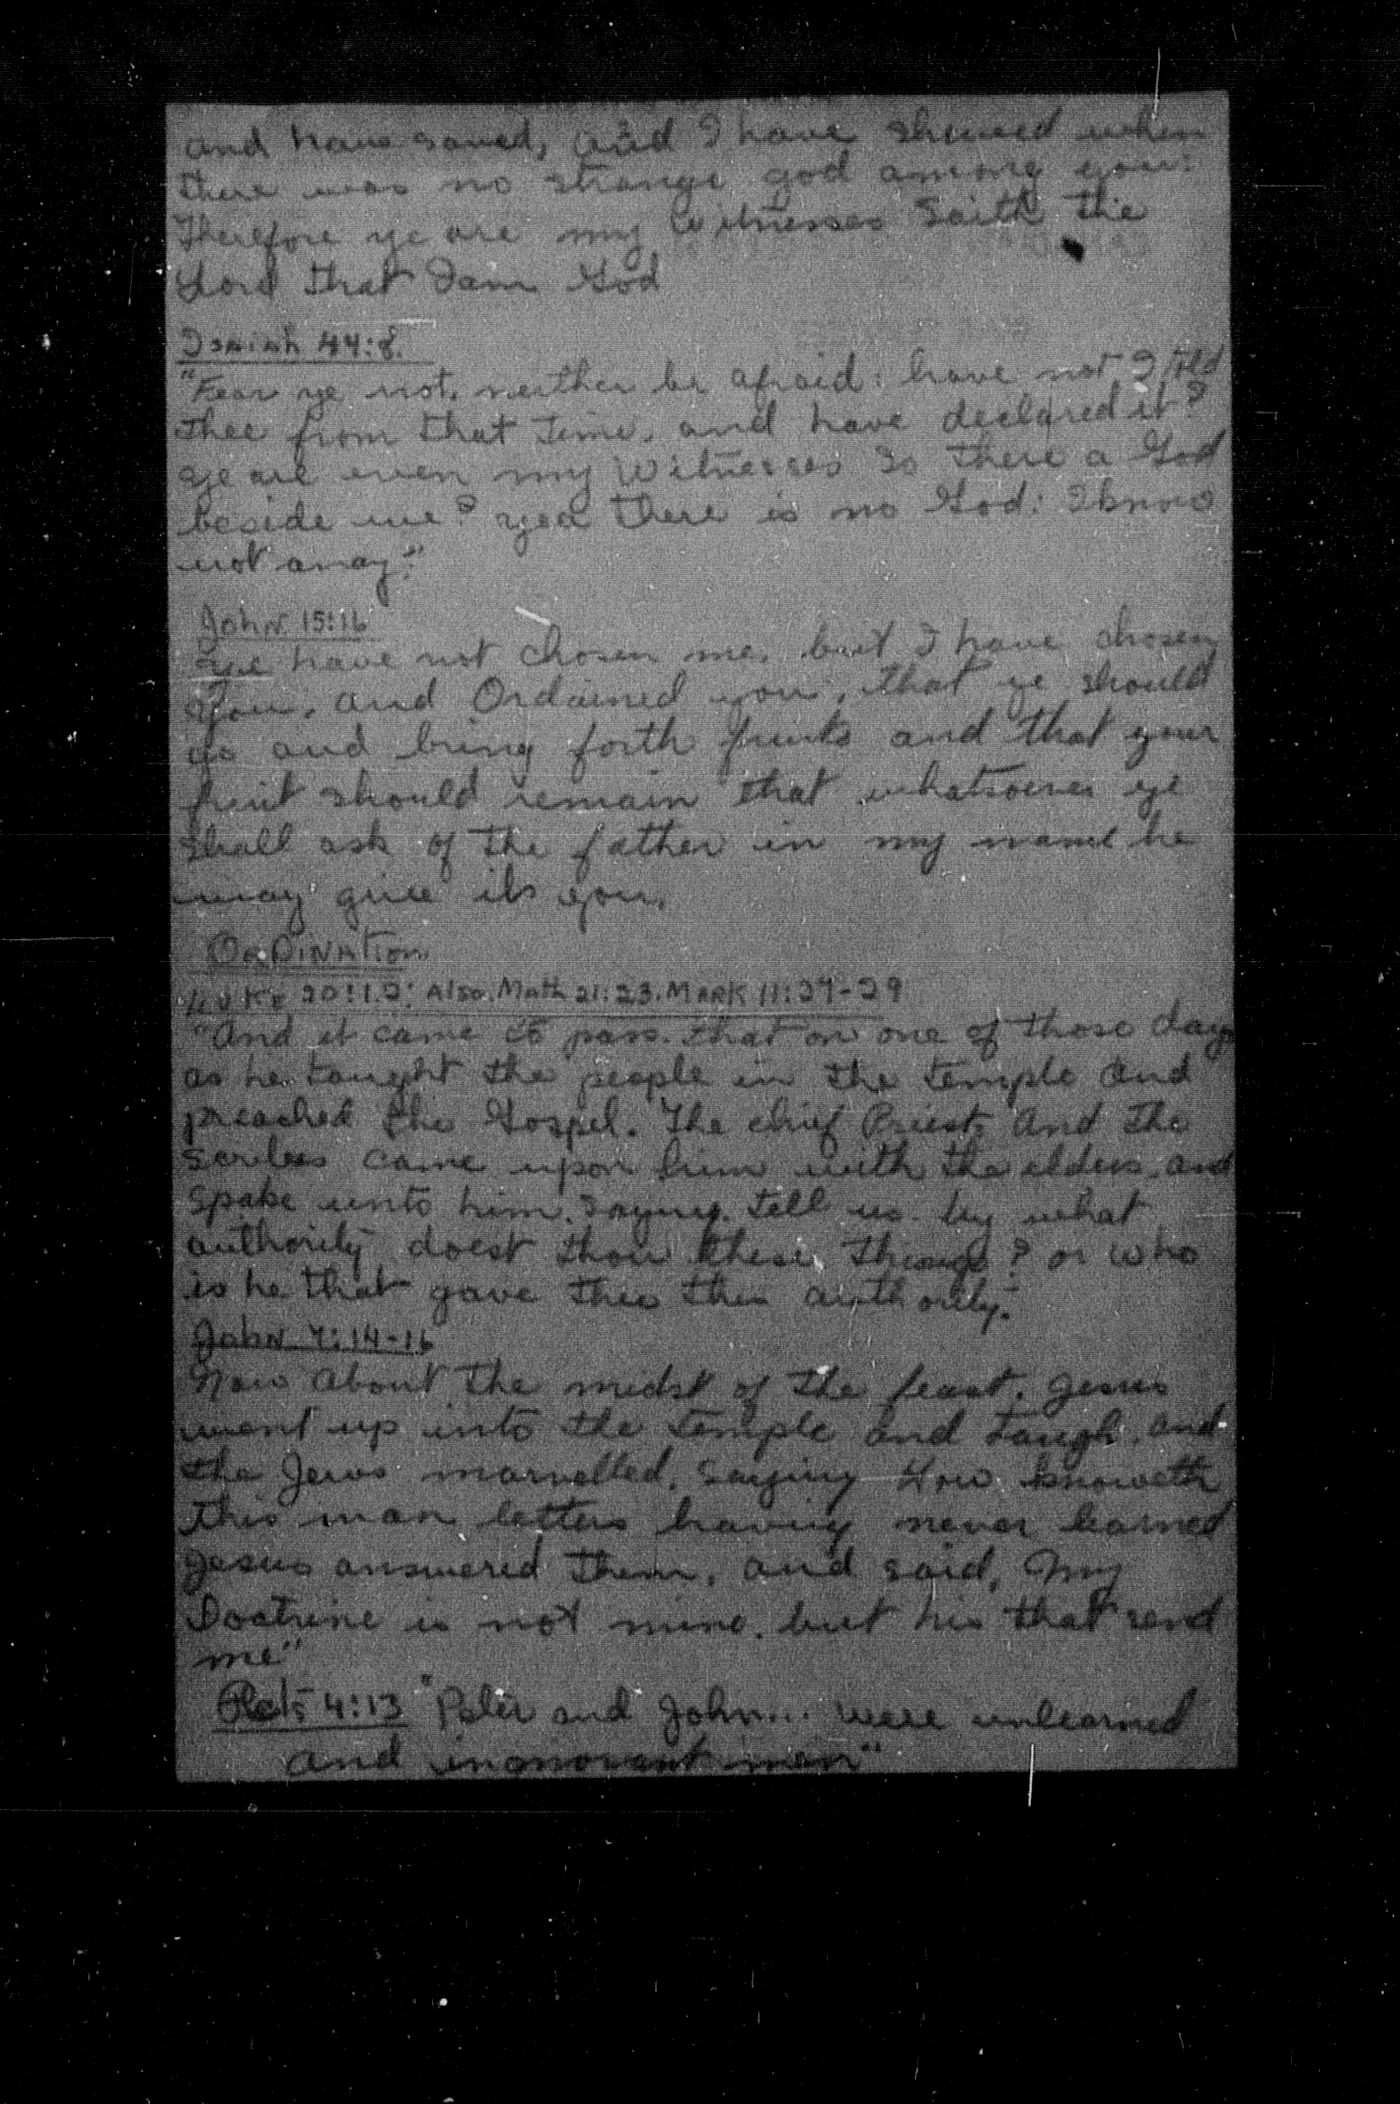 and have saved, and I have shewed when
there was no strange god among you:
Therefore ye are my Witnesses Saith the
Lord that I am God
Isaiah 44:8.
"Fear ye not, neither be afraid: have not I told
thee from that time, and have declared it?
ye are even my Witnesses Is there a God
beside me? yea there is no God: I know
not anay."
John 15:16
Ye have not chosen me, but I have chosen
You, and Ordained you, that ye should
go and bring forth fruits and that your
fruit should remain that whatsoever ye
shall ask of the father in my name he
may give it you.
ORDINATION
LUKE 20:1.2: Also. Math 21:23. MARK 11:27-29
"And it came to pass. that on one of those days
as he taught the people in the temple and
preached the Gospel. The chief Priest and the
scribes came upon him with the elders, and
spake unto him. saying. tell us by what
authority doest thou these things? or who
is he that gave thee this authority."
John 7:14-16
Now about the midst of the feast, Jesus
went up into the temple and taugh, and
the Jews marvelled, saying How knoweth
this man letters having never learned
Jesus answered them, and said, My
Doctrine is not mine. but his that send
me"
Acts 4:13 "Peter and John... were unlearned
and ingnorant men"